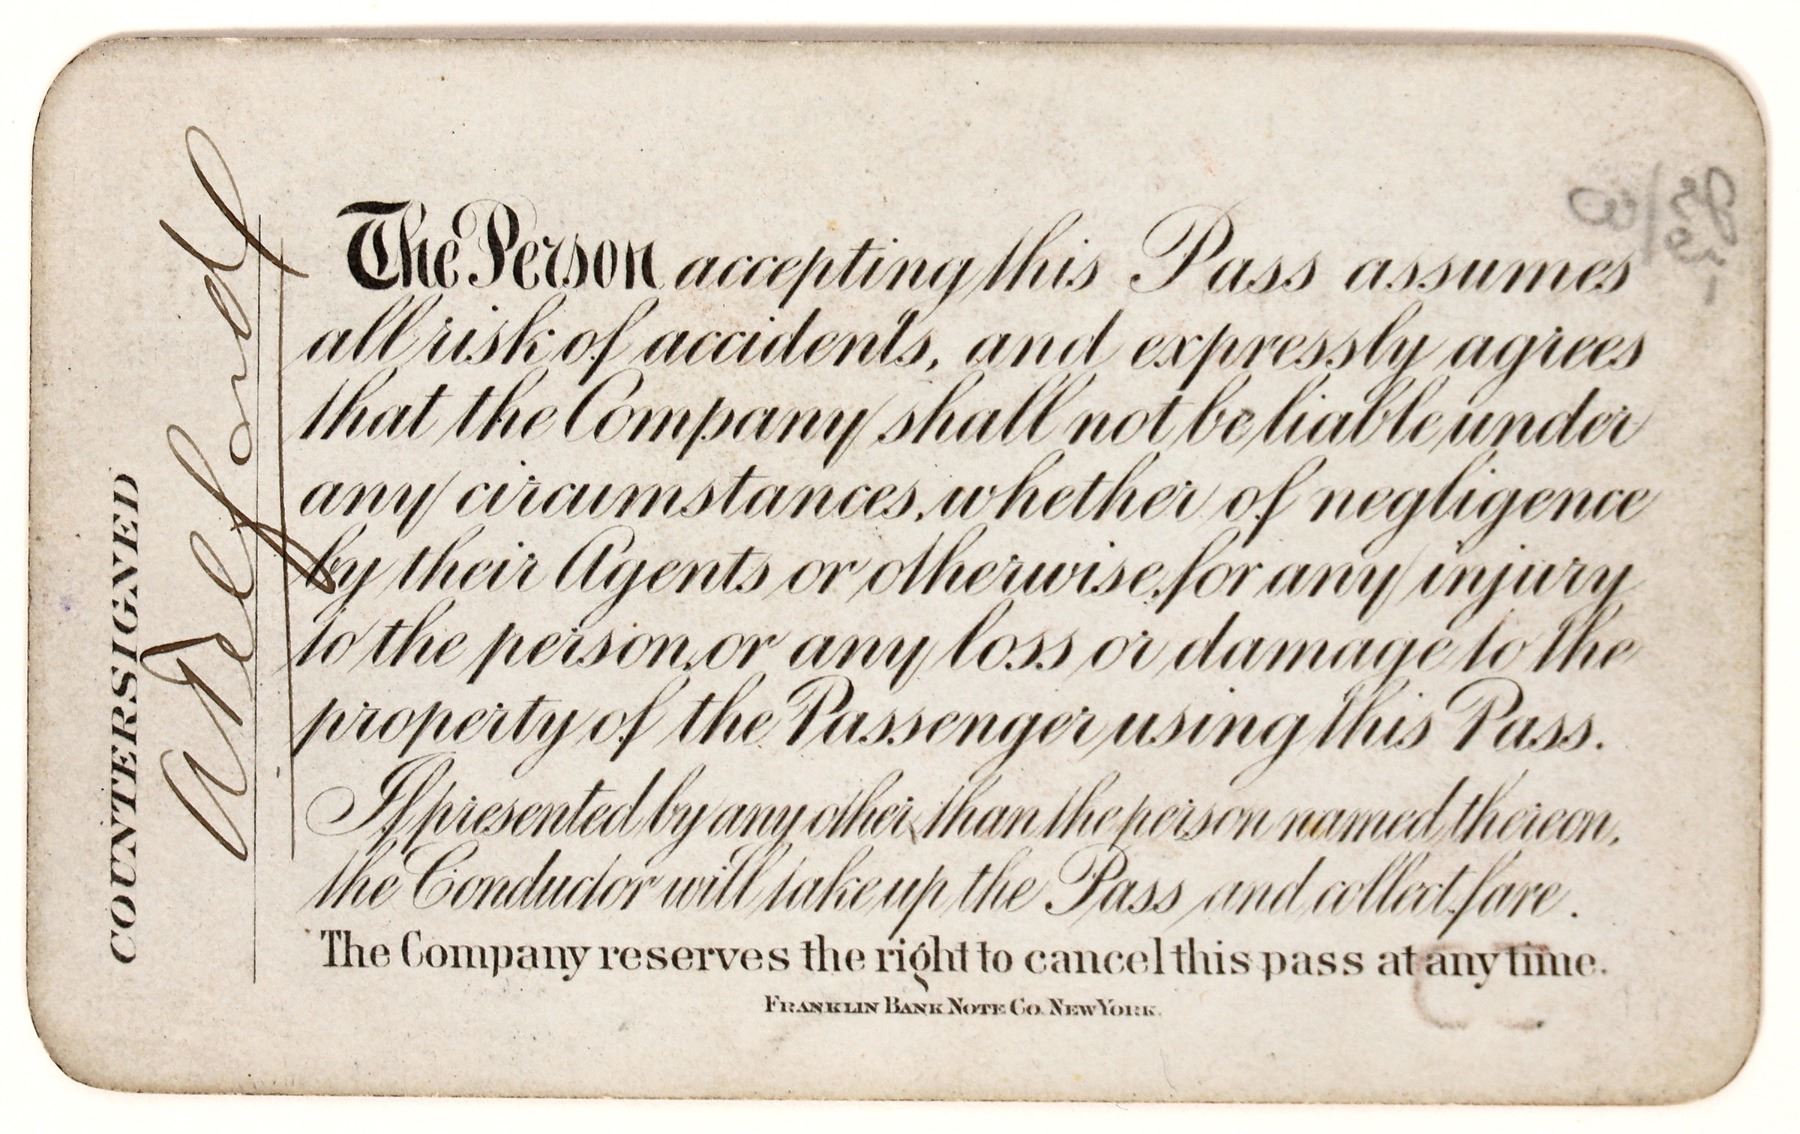 COUNTERSIGNED
The Person accepting this Pass assumes
all risk of accidents, and expressly agrees
that the Company shall not be liable under
any circumstances, whether of negligence
by their Agents or otherwise, for any injury
to the person, or any loss or damage to the
property of the Passenger using this Pass.
If presented by any other than the person named thereon,
the Conductor will take up the Pass and collect fare.
The Company reserves the right to cancel this pass at any time.
FRANKLIN BANK NOTE CO. NEW YORK.